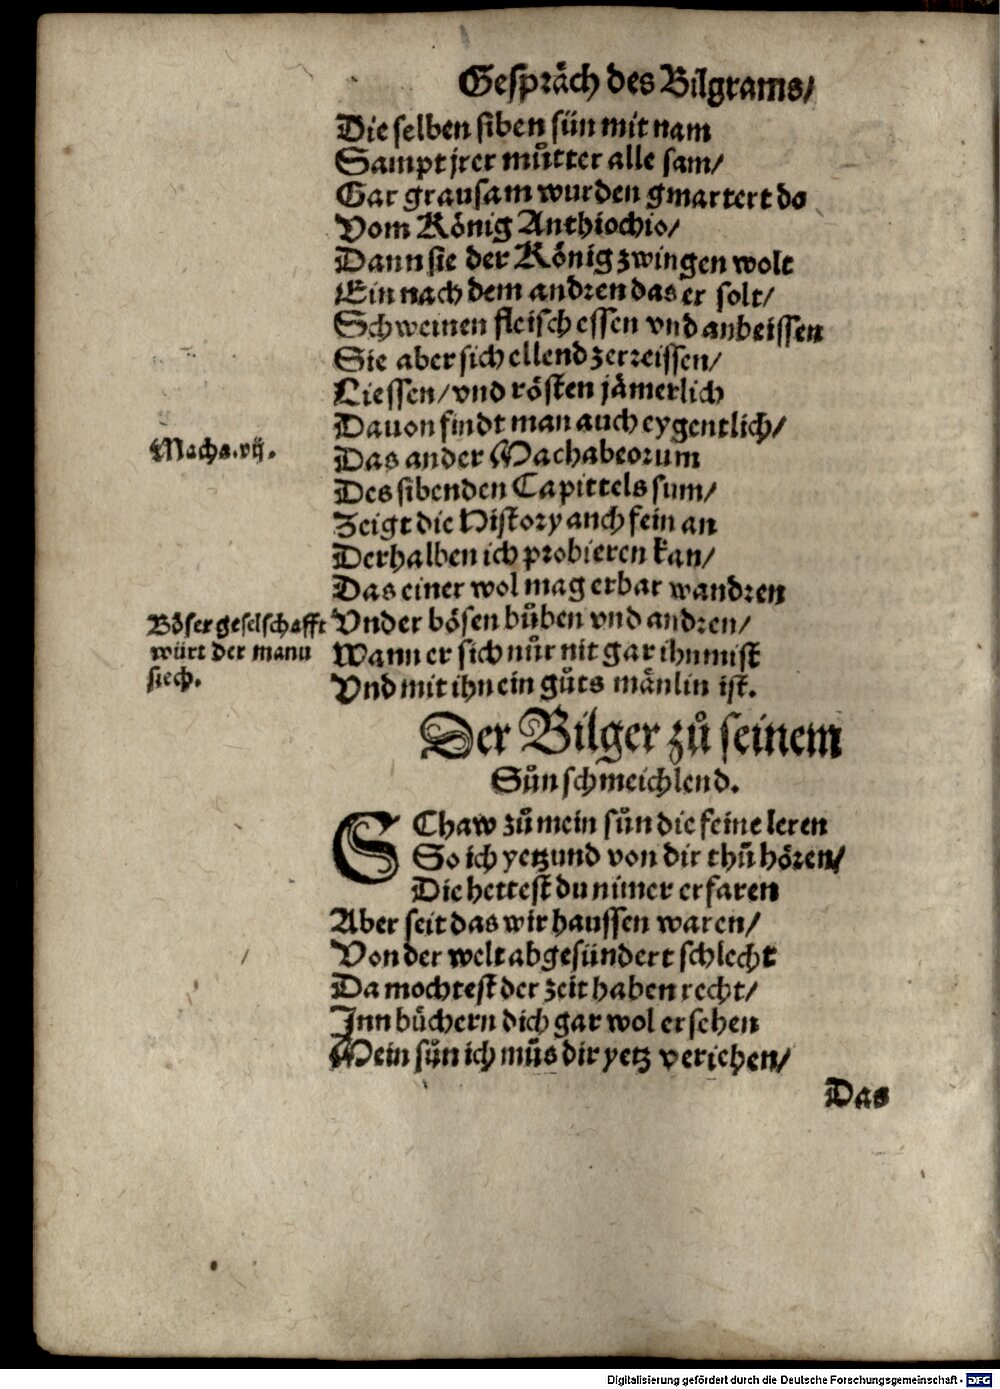 Gespräch des Bilgrams/
Die selben siben sün mit nam
Sampt jrer můtter alle sam/
Gar grausam wurden gmartert do
Vom König Anthiochio/
Dann sie der König zwingen wolt
Ein nach dem andren das er solt/
Schweinen fleisch essen vnd anbeissen
Sie aber sich ellend zerreissen/
Liessen/ vnd rösten jämerlich
Dauon findt man auch eygentlich/
Machs.vij.
Das ander Machabeorum
Des sibenden Capittels sum/
Zeigt die History auch fein an
Derhalben ich probieren kan/
Das einer wol mag erbar wandren
Böser geselschafft
würt der mann
siech.
Vnder bösen bůben vnd andren/
Wann er sich nůr nit gar ihn mist
Vnd mit ihn ein gůts mänlin ist.
Der Bilger zů seinem
Sůn schmeichlend.
SChaw zů mein sůn die feine leren
So ich yetzund von dir thů hören/
Die hettest du nimer erfaren
Aber seit das wir haussen waren/
Von der welt abgesündert schlecht
Da mochtest der zeit haben recht/
Inn bůchern dich gar wol ersehen
Mein sůn ich můs dir yetz veriehen/
Das
Digitalisierung gefördert durch die Deutsche Forschungsgemeinschaft - DFG